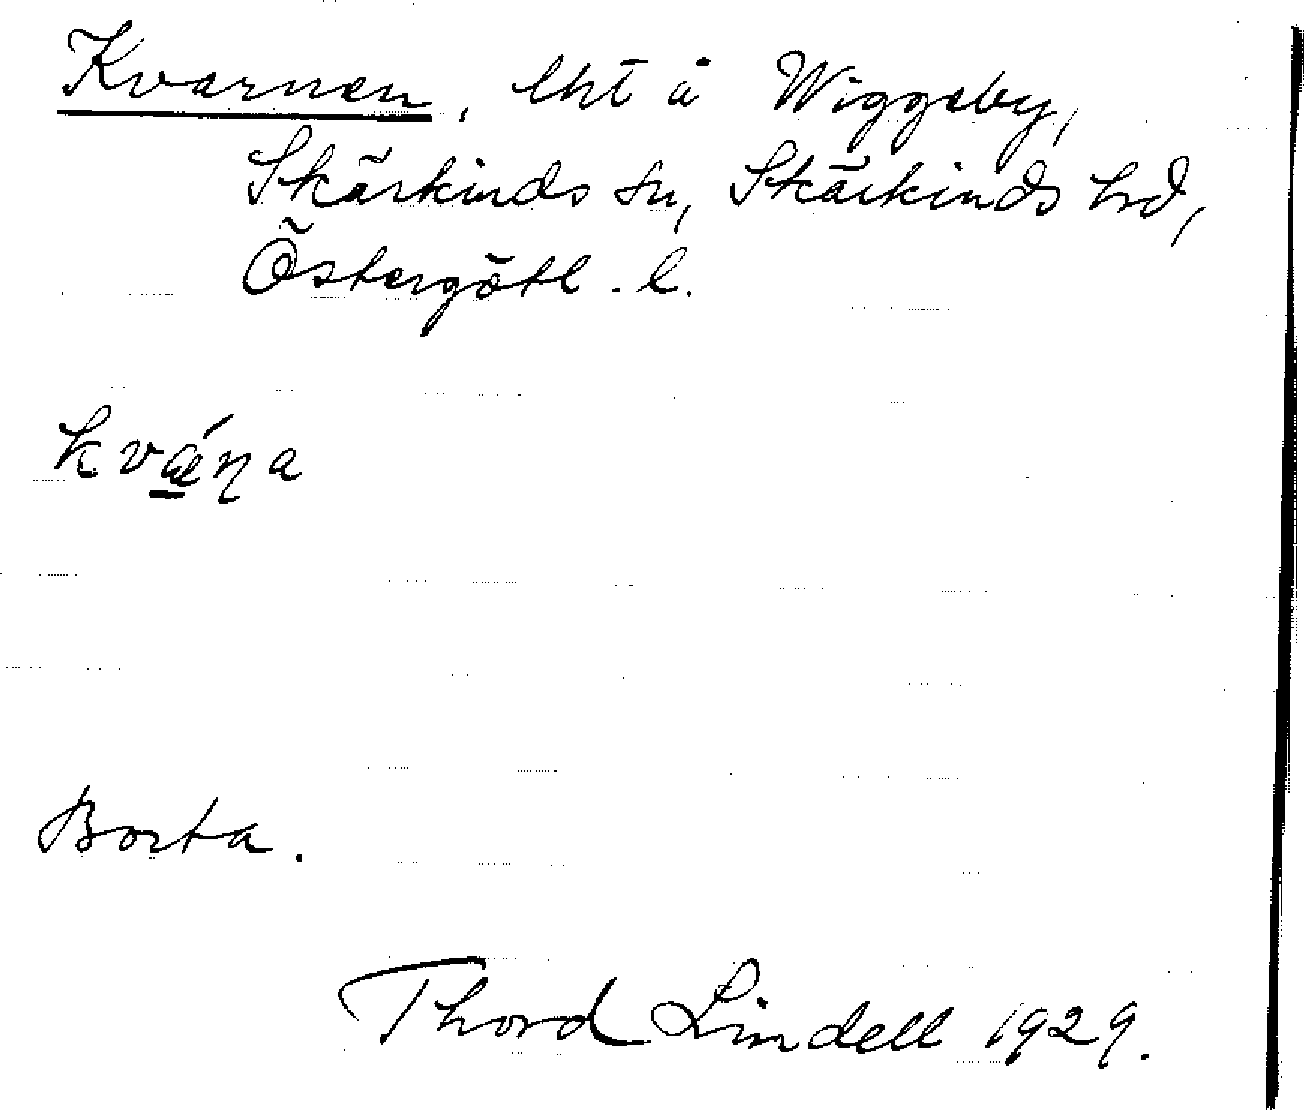 Kvarnen, lht å Wiggeby,
Skärkinds sn, Skärkinds hd,
Östergötl. l.
kvǽ̱ŋa
Borta.
Thord Lindell 1929.